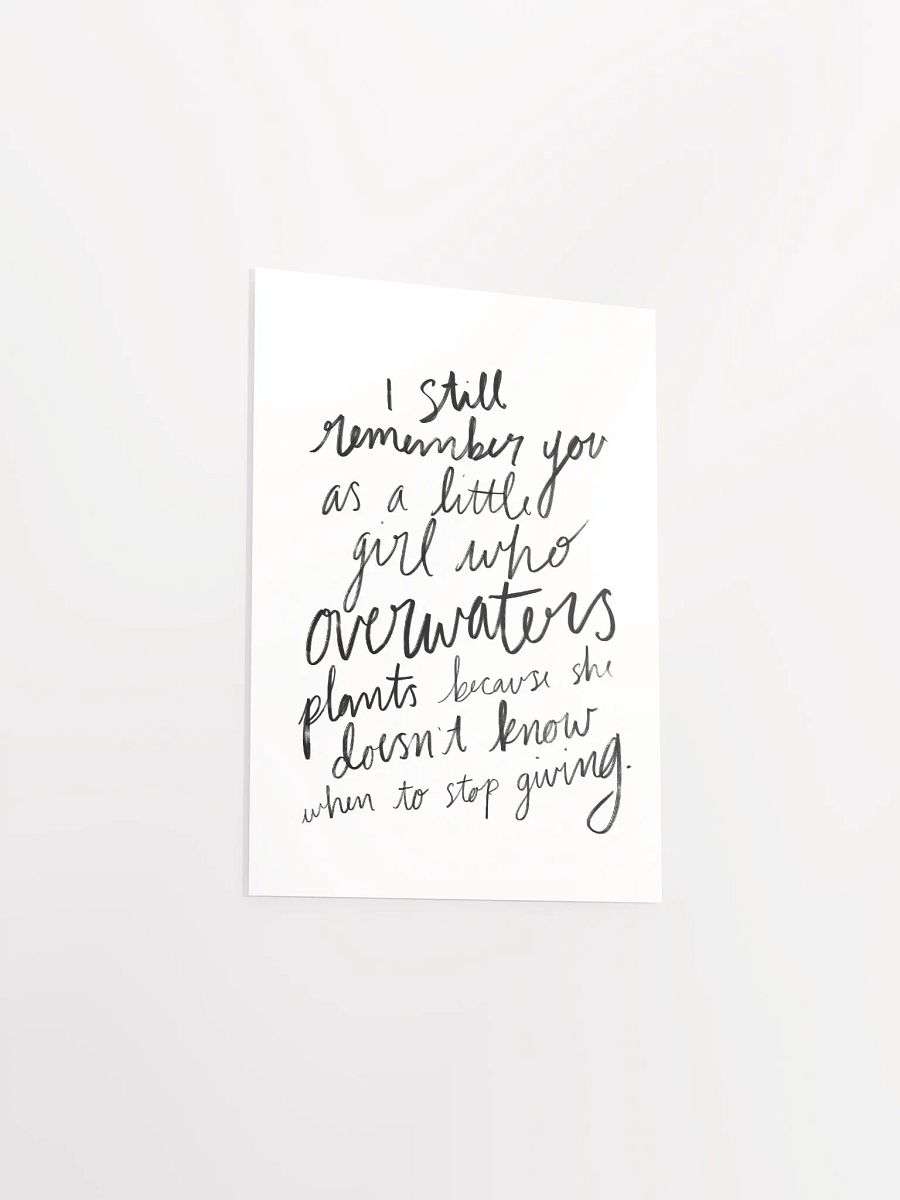 I still
remember you
as a little
girl who
overwaters
plants because she
doesn't know
when to stop giving.